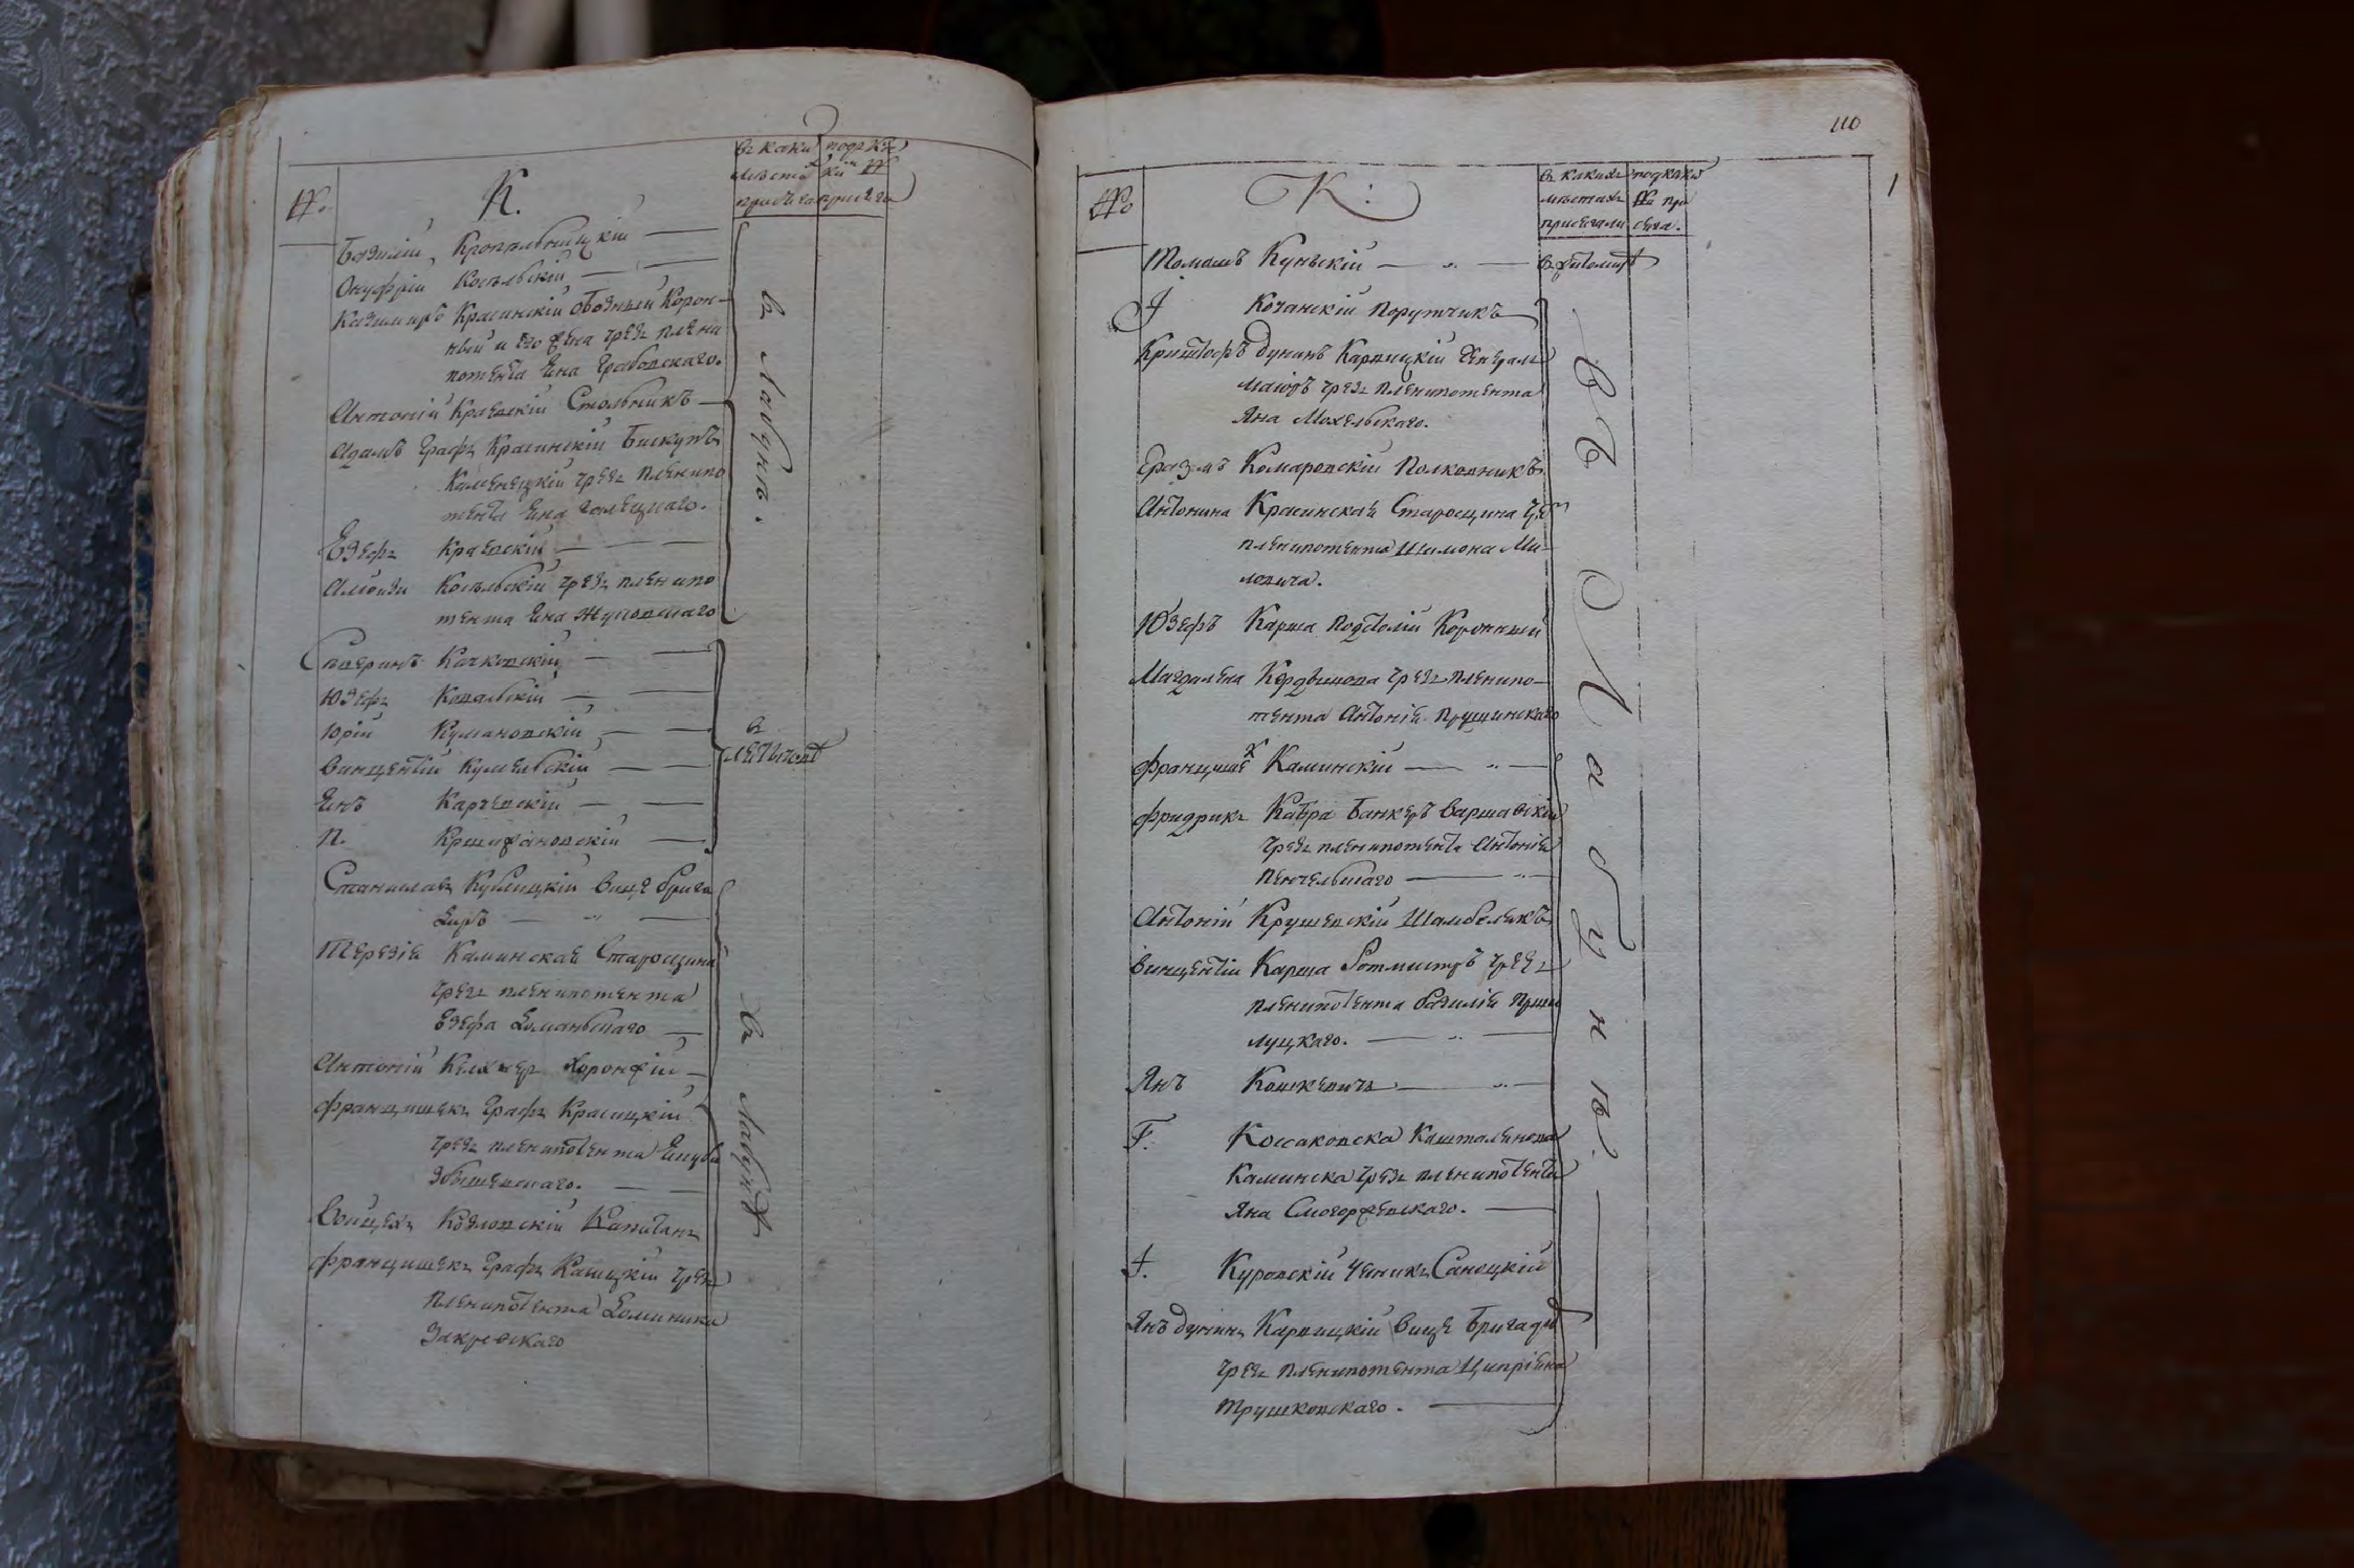 №
К.
въ какихъ
мѣста
присяга
подъ ка
кій №
присяга
Базилій Кропивницкій
Онуфрій Косѣльскій
Казимиръ Красинскій Обозный Корон-
ный и его жена чрезъ плени
потента Яна Грабовскаго.
Антоній Краевскій Стольникъ
Адамъ Графъ Красинскій Бискупъ
Каменецкій чрезъ пленипо
тента Яна
Езефъ Краевскій
Алоизи Косѣльскій чрезъ пленипо
тента Яна
въ Лабунѣ.
Северинъ Качковскій
Юзефъ Ковальскій
Юрій Кумановскій
Винцентій
Янъ Карчевскій
П. Кршижановскій
въ
Летычевѣ
Станиславъ Кублицкій Вице Брига
диръ
Терезія Каминская Старостина
чрезъ пленипотента
Езефа Доманьскаго
Антоній Келхнеръ Хоронжій
Францишекъ Графъ Красицкій
чрезъ пленипотента Якуба
Збышевскаго.
Войцехъ Козловскій Капитанъ
Францишекъ Графъ чрезъ
пленипотента Доминика
Закревскаго
въ Лабунѣ
110
1
№
К:
въ какихъ
мѣстахъ
присягали
подъ какъ
№ при
сяга.
Томашъ Куньскій
въ Житомирѣ
J Кочанскій Порутчикъ
Криштофъ Дунинъ Карвицкій Генералъ
Маіоръ чрезъ пленипотента
Яна Мохельскаго.
Еразмъ Комаровскій Полковникъ
Антонина Красинская Старостина чрез
пленипотента Шимона Ми-
ловича.
Юзефъ Карша Подстолій Коронный
Магдалена Кордышова чрезъ пленипо-
тента Антонія Прушинскаго
Францишекъ Каминскій
Фридрикъ Кабри Банкеръ Варшавскій
чрезъ пленипотента Антонія
Пенчельскаго
Антоній Крушевскій Шамбелянъ
Винцентій Карша Ротмистръ чрезъ
пленипотента Базилія Прши
луцкаго.
Янъ Кошкевичъ
F. Коссаковска Каштелянова
Каминска чрезъ пленипотента
Яна Смогоржевскаго.
J. Куровскій Чесникъ Саноцкій
Янъ Дунинъ Карвицкій Вице Бригадиръ
чрезъ пленипотента Ципріяна
Трушковскаго.
въ Лабунѣ.